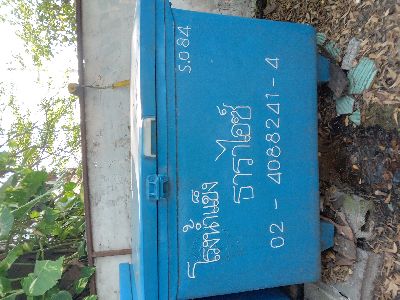 S.084
โรงน้ำแข็ง
ธาราไอซ์
02 - 4088241-4